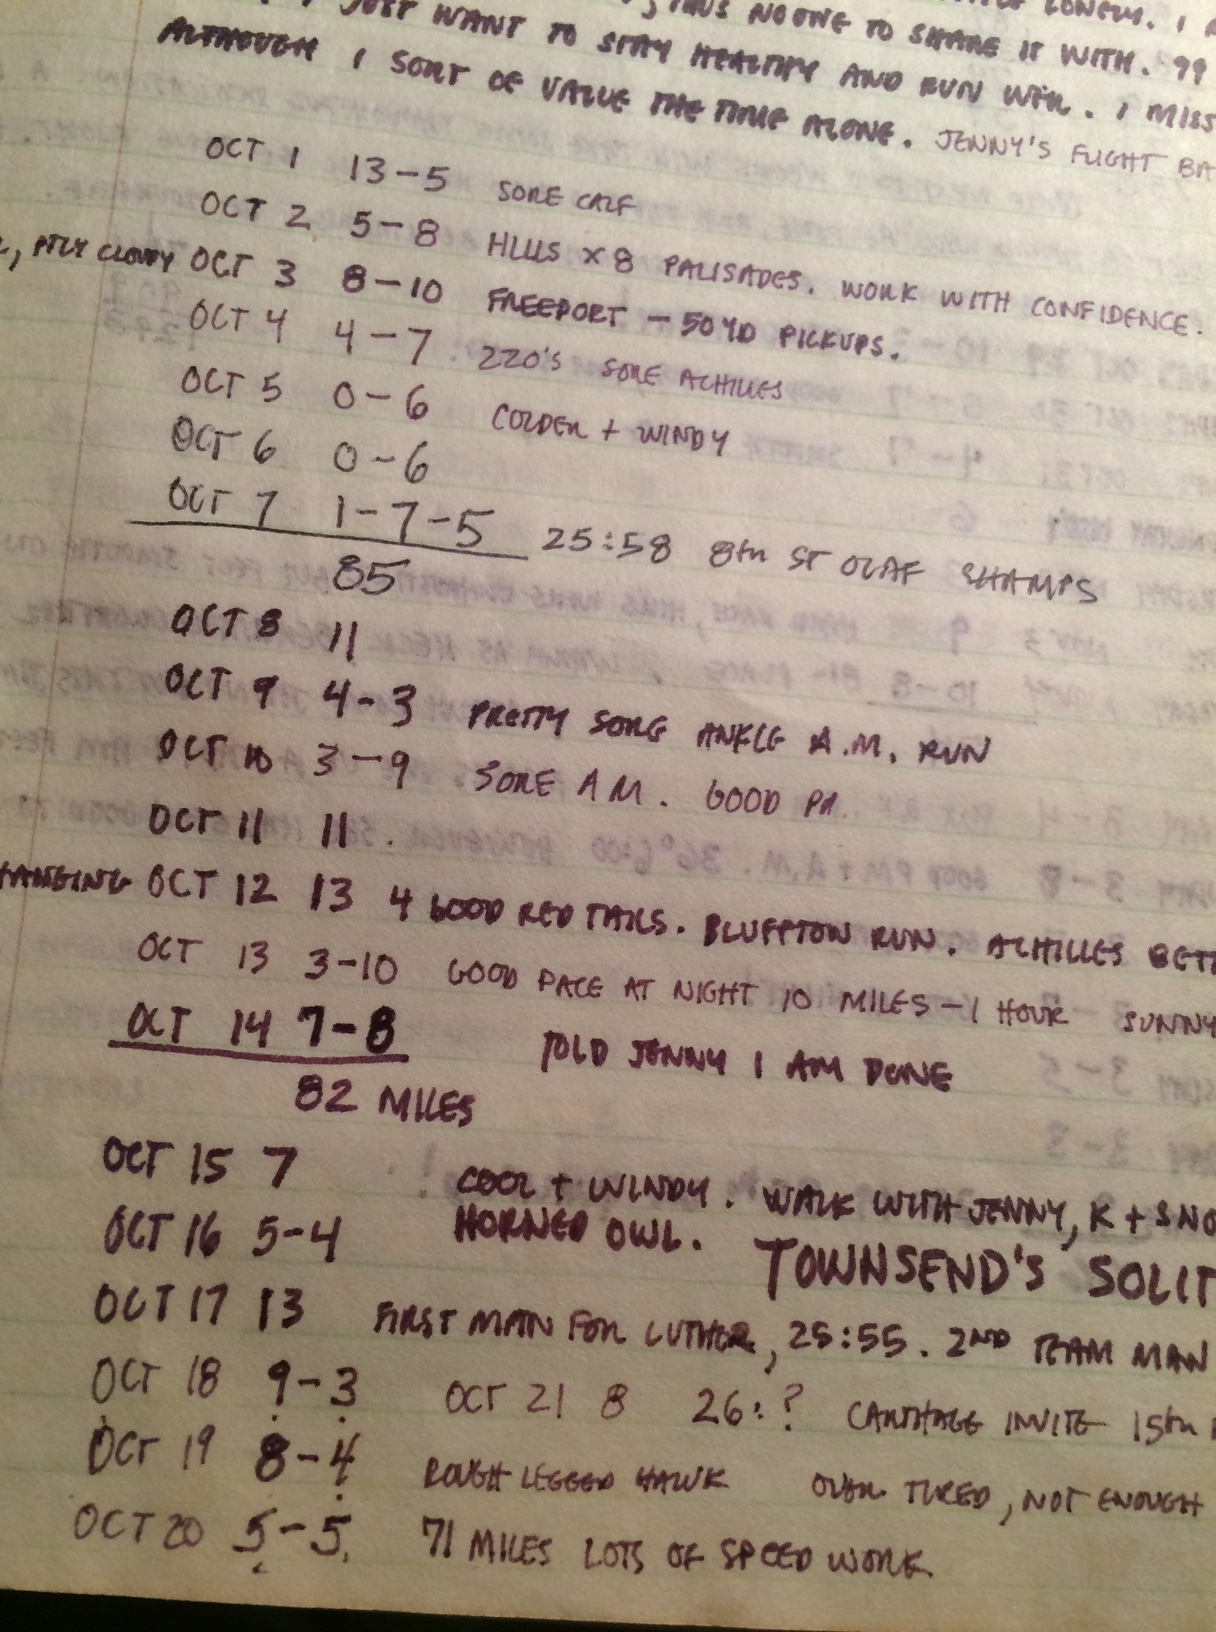 LONELY. I
JUST WANT TO STAY HEALTHY AND RUN WELL. I MISS
, THUS NO ONE TO SHARE IT WITH. 79
ALTHOUGH I SORT OF VALUE THE TIME ALONE. JENNY'S FLIGHT BA
OCT 1 13-5 SORE CALF
OCT 2 5-8 HILLS X 8 PALISADES. WORK WITH CONFIDENCE.
, PTLY CLOUDY OCT 3 8-10 FREEPORT - 50 YD PICKUPS.
OCT 4 4-7 220'S SORE ACHILLES
OCT 5 0-6 COLDER + WINDY
OCT 6 0-6
OCT 7 1-7-5 25:58 8TH ST OLAF CHAMPS
85
OCT 8 11
OCT 9 4-3 PRETTY SORE ANKLE A.M. RUN
OCT 10 3-9 SORE AM. GOOD PM.
OCT 11 11.
HANGING OCT 12 13 4 GOOD RED TAILS. BLUFFTON RUN. ACHILLES BETT
OCT 13 3-10 GOOD PACE AT NIGHT 10 MILES - 1 HOUR SUNNY
OCT 14 7-8 TOLD JENNY I AM DONE
82 MILES
OCT 15 7 COOL + WINDY. WALK WITH JENNY, K + SNO
OCT 16 5-4 HORNED OWL. TOWNSEND'S SOLIT
OCT 17 13 FIRST MAN FOR LUTHER, 25:55. 2ND TEAM MAN
OCT 18 9-3 OCT 21 8 26:? CARTHAGE INVITE 15TH
OCT 19 8-4 ROUGH LEGGED HAWK OVER TIRED, NOT ENOUGH
OCT 20 5-5. 71 MILES LOTS OF SPEED WORK.